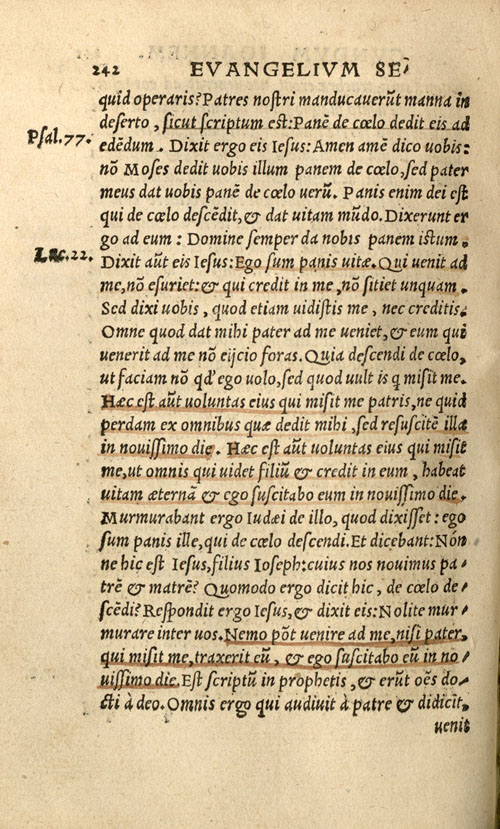 242 EVANGELIVM SE⸗
quid operaris? Patres nostri manducauerũt manna in
deserto, sicut scriptum est: Panẽ de cœlo dedit eis ad
Psal. 77.
edẽdum. Dixit ergo eis Iesus: Amen amẽ dico uobis:
nõ Moses dedit uobis illum panem de cœlo, sed pater
meus dat uobis panẽ de cœlo uerũ. Panis enim dei est
qui de cœlo descẽdit, & dat uitam mũdo. Dixerunt er
go ad eum: Domine semper da nobis panem istum.
Luc. 22.
Dixit aũt eis Iesus: Ego sum panis uitæ. Qui uenit ad
me, nõ esuriet: & qui credit in me, nõ sitiet unquam.
Sed dixi uobis, quod etiam uidistis me, nec creditis.
Omne quod dat mihi pater ad me ueniet, & eum qui
uenerit ad me nõ eijcio foras. Quia descendi de cœlo,
ut faciam nõ qđ ego uolo, sed quod uult is q̃ misit me.
Hæc est aũt uoluntas eius qui misit me patris, ne quid
perdam ex omnibus quæ dedit mihi, sed resuscitẽ illa
in nouissimo die. Hæc est aũt uoluntas eius qui misit
me, ut omnis qui uidet filiũ & credit in eum, habeat
uitam æternã & ego suscitabo eum in nouissimo die.
Murmurabant ergo Iudæi de illo, quod dixisset: ego
sum panis ille, qui de cœlo descendi. Et dicebant: Nõn
ne hic est Iesus, filius Ioseph: cuius nos nouimus pa⸗
trẽ & matrẽ? Quomodo ergo dicit hic, de cœlo de⸗
scẽdi? Respondit ergo Iesus, & dixit eis: Nolite mur⸗
murare inter uos. Nemo põt uenire ad me, nisi pater,
qui misit me, traxerit eũ, & ego suscitabo eũ in no⸗
uissimo die. Est scriptũ in prophetis, & erũt oẽs do⸗
cti à deo. Omnis ergo qui audiuit à patre & didicit,
uenit